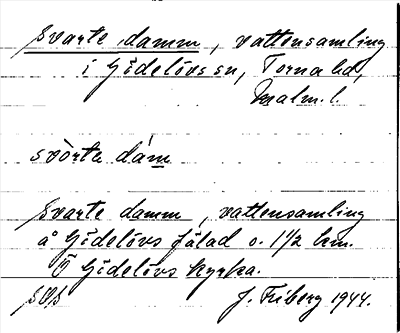 Svarte damm, vattensamling
i Gödelövs sn, Torna hd,
Malm. l.
svòrte dám
Svarte damm, vattensamling
å Gödelövs fälad o. 1 1/2 km.
Ö Gödelövs kyrka.
J. Friberg 1944.